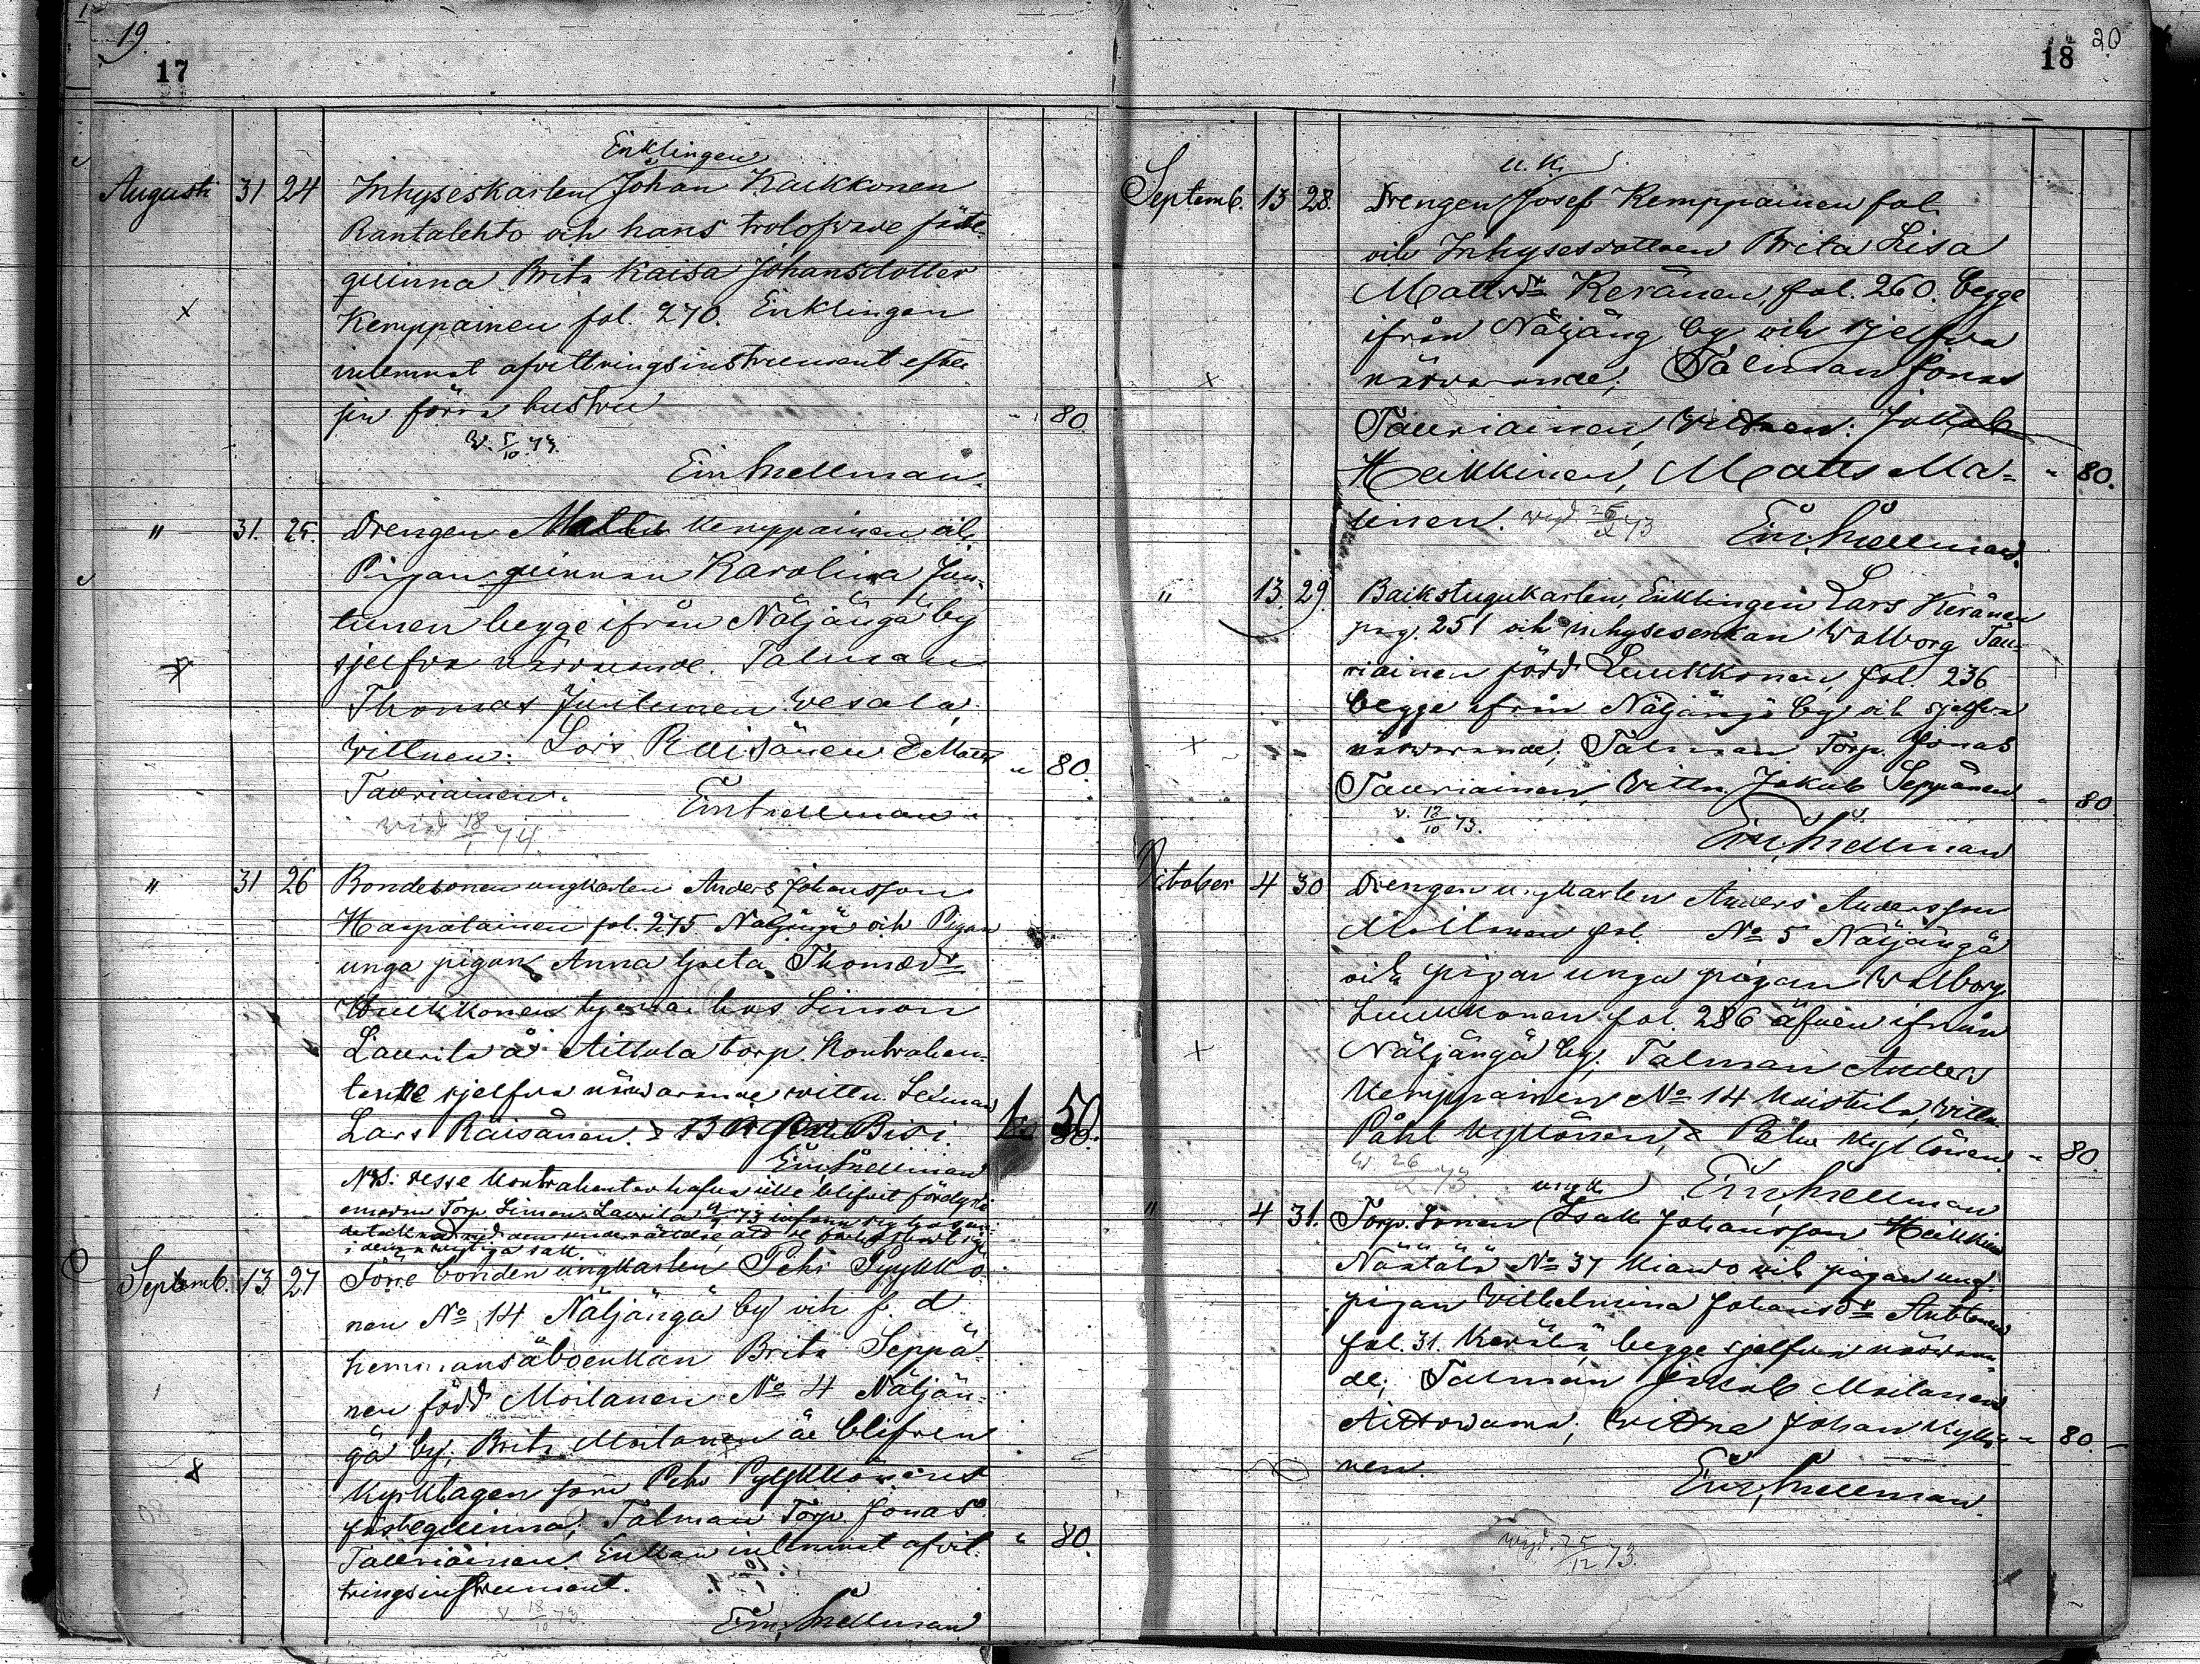 19.
17
Enklingen
Augusti 31 24 Inhyseskarlen Johan Kaikkonen
Rantalehto och hans trolofvade fäste-
quinna Brita Kaisa Johansdotter
Kemppainen fol. 270. Enklingen
inlemnat afvittringsinstrument efter
sin förra hustru " 80.
W. 5/10 73.
Em Snellman.
" 31. 25. Drengen Matts Kemppainen och
Pigan quinnan Karolina Jun-
tunen begge ifrån Näljängä by
sjelfva närvarande. Talman
Thomas Juntunen Vesala,
Vittnen: Lars Räisänen & Matts " 80.
Tauriainen. Em Snellman
vigd 18/1 74.
" 31 26 Bondesonen ungkarlen Anders Johansson
Haapalainen fol. 275 Näljängä och Pigan
unga pigan Anna Greta Thomasdr
tjenar hos Simon
Laurila å Aittola torp. Kontrahen-
terne sjelfva närvarande vittn. Leiman
Lars Räisänen & 50.
Em Snellman
NB. desse Kontrahenter hafva icke blifvit
Torp. Simon Laurila 73
i denna vigtiga sak.
Septemb. 13 27 Förre bonden ungkarlen Pehr Pyykkö-
nen No 14 Näljängä by och f. d.
hemmansåboenkan Brita Seppä-
nen född Moilanen No 4 Näljän-
gä by; Brita Moilanen är blifven
kyrktagen som Pehr Pyykkönens
fästequinna; Talman Torp. Jonas
Tauriainen. Enkan inlemnat afvit- " 80.
tringsinstrument.
v. 18/10 73
Em. Snellman
18 20
u. k.
Septemb. 13 28. Drengen Josef Kemppainen fol.
och Inhysesdottren Brita Lisa
Mattsdr Keränen, fol. 260. begge
ifrån Näljäng by och sjelfva
närvarande; Talman Jonas
Tauriainen, Vittnen: Jakob
Heikkinen, Matts Ma- " 80.
vigd 26/ 73 Em. Snellman.
" 13. 29. Backstugukarlen, Enklingen Lars Keränen
pag. 251 och inhysesenkan Walborg Tau-
riainen född Luukkonen, fol 236
begge ifrån Näljängä by och sjelfva
närvarande; Talman Torp. Jonas
Tauriainen, Vittn. Jakob Seppänen " 80
v. 12/10 73.
Em, Snellman
October 4 30 Drengen ungkarlen Anders Andersson
fol. No 5 Näljängä
och pigan unga pigan Walborg
Luukkonen fol. 286 äfven ifrån
Näljängä by. Talman Anders
Kemppainen No 14 Koistila, vittn.
Påhl Kyllönen, & Pehr Kyllönen " 80.
v 26/ 73 Em, Snellman
ungk.
" 4 31. Torp. Sonen Isak Johansson Heikkinen
Näätälä No 37 Kianto och pigan unga
pigan Wilhelmina Johansdr Anttonen
fol. 31. Kerälä begge sjelfva närvaran-
de; Talman Jakob Moilanen
Aittovaara; Vittne Johan Kyllö- " 80.
nen.
Em, Snellman.
vigd. 25/12 73.